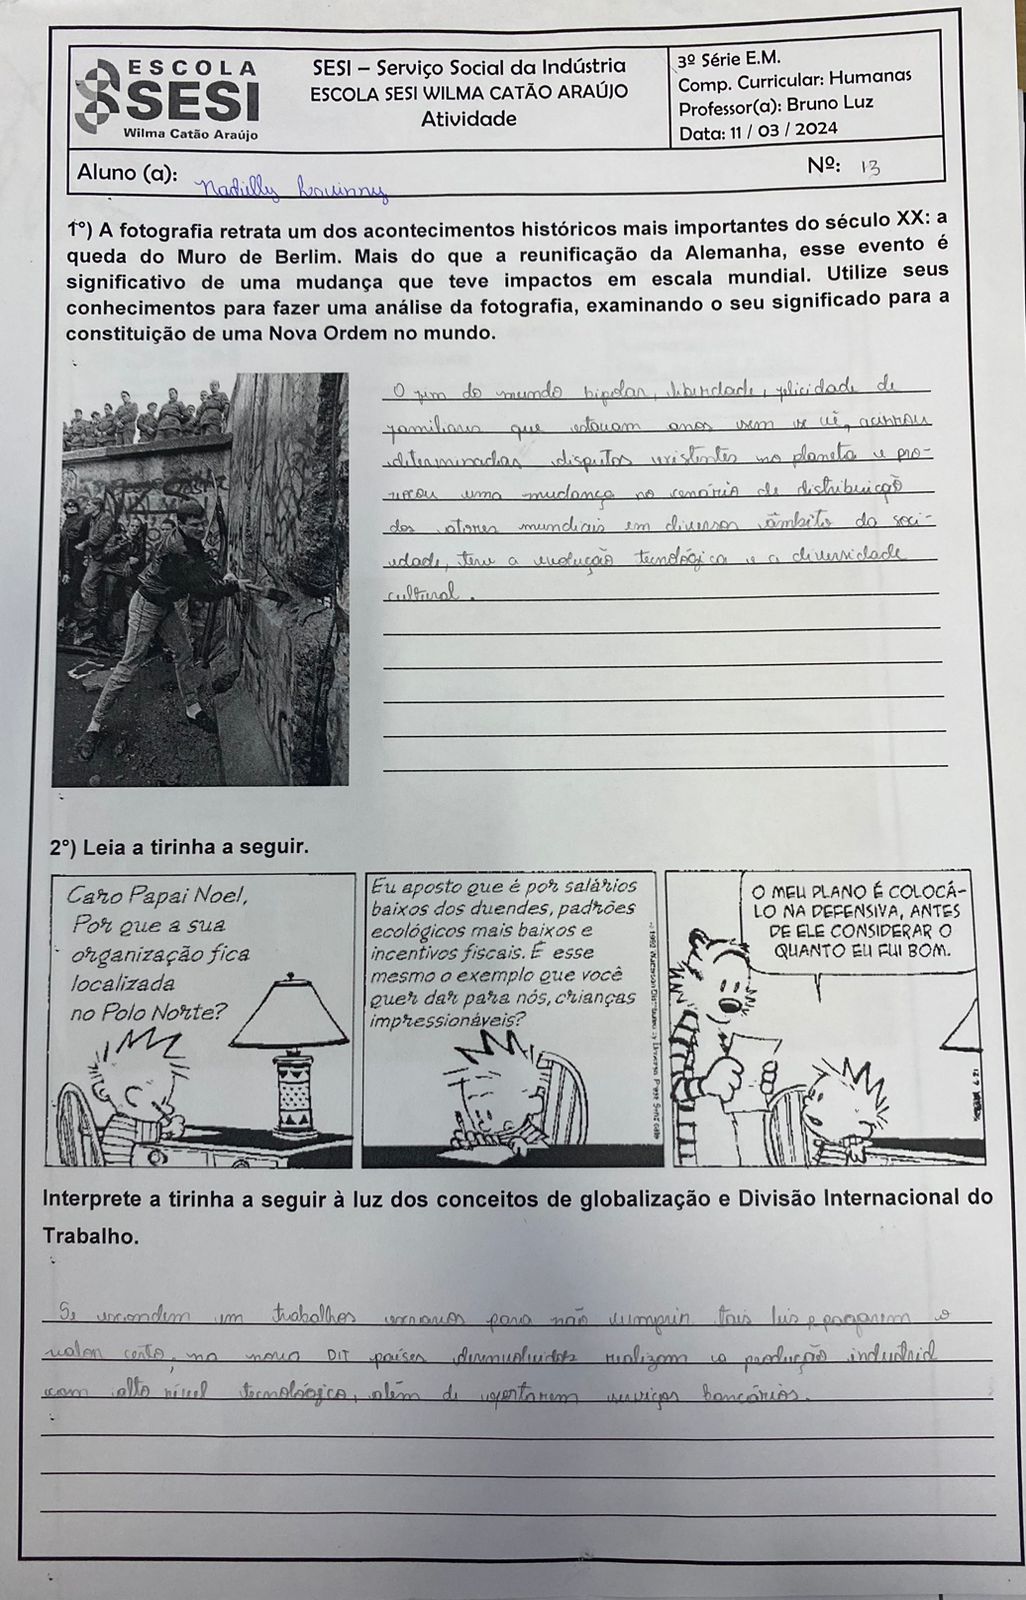 ESCOLA
SESI
Wilma Catão Araújo
SESI – Serviço Social da Indústria
ESCOLA SESI WILMA CATÃO ARAÚJO
Atividade
3º Série E.M.
Comp. Curricular: Humanas
Professor(a): Bruno Luz
Data: 11 / 03 / 2024
Aluno (a):
Nº: 13
1°) A fotografia retrata um dos acontecimentos históricos mais importantes do século XX: a
queda do Muro de Berlim. Mais do que a reunificação da Alemanha, esse evento é
significativo de uma mudança que teve impactos em escala mundial. Utilize seus
conhecimentos para fazer uma análise da fotografia, examinando o seu significado para a
constituição de uma Nova Ordem no mundo.
O fim do mundo bipolar, liberdade, felicidade de
familiares que estavam anos sem se vê, acirrou
determinadas disputas existentes no planeta e pro-
vocou uma mudança no cenário de distribuição
dos atores mundiais em diversos âmbito da soci-
edade, teve a evolução tecnológica e a diversidade
cultural.
2°) Leia a tirinha a seguir.
Caro Papai Noel,
Por que a sua
organização fica
localizada
no Polo Norte?
Eu aposto que é por salários
baixos dos duendes, padrões
ecológicos mais baixos e
incentivos fiscais. É esse
mesmo o exemplo que você
quer dar para nós, crianças
impressionáveis?
O MEU PLANO É COLOCÁ-
LO NA DEFENSIVA, ANTES
DE ELE CONSIDERAR O
QUANTO EU FUI BOM.
Interprete a tirinha a seguir à luz dos conceitos de globalização e Divisão Internacional do
Trabalho.
Se escondem em trabalhos escravos para não cumprir tais leis e pagarem o
valor certo, na nova DIT países desenvolvidos realizam a produção industrial
com alto nível tecnológico, além de exportarem serviços bancários.